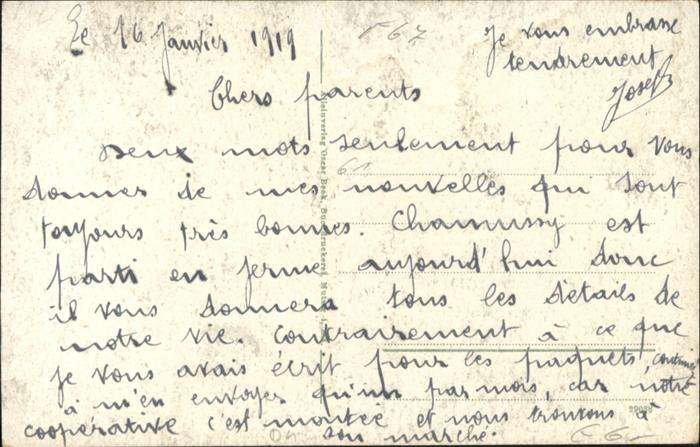 Le 16 Janvier 1919
Chers parents
Deux mots seulement pour vous
donner de mes nouvelles qui sont
toujours très bonnes. Chamussy est
parti en ferme aujourd'hui donc
il vous donnera tous les détails de
notre vie. Contrairement à ce que
je vous avais écrit pour les paquets, continuez
à m'en envoyer qu'un par mois, car notre
coopérative c'est montée et nous trouvons à
bon marché.
Je vous embrasse
tendrement
Joseph